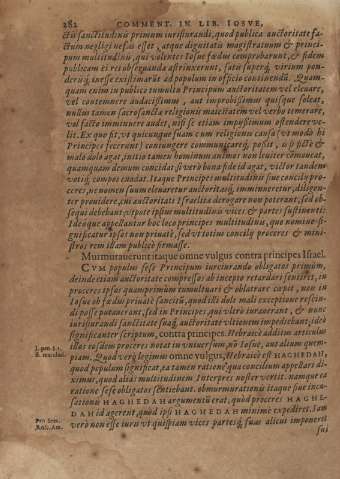 282 COMMENT. IN LIB. IOSVE,
ctū sanctitudinis primum iurisiurandi, quod publica auctoritate fa-
ctum negligi nefas esset, atque dignitatis magistratuum & princi-
pum multitudini, qui volentes Iosue fœdus comprobarunt, & fidem
publicam ei rei obseruanda astrinxerunt, satis superq́; virium pon-
derisq́; inesse existimarūt ad populum in officio continendū. Quam-
quam enim in publico tumultu Principum auctoritatem vel eleuare,
vel contemnere audacissimus, aut improbissimus quisque soleat,
nullus tamen sacrosancta religionis maiestatem vel verbo temerare,
vel facto imminuere audet, nisi se etiam impiissimum ostendere ve-
lit. Ex quo fit, vt quicunque suam cum religionis causa (vt modo hi
Principes fecerunt) coniungere communicareq́; possit, is ipse etsi
malo dolo agat, initio tamen hominum animos non leuiter cōmoueat,
quamquam demum concidat si verò bona fide id agat, victor tandem
votiq́; compos euadat. Itaque Principes multitudinis siue concilij pro-
ceres, ne nomen suum eleuaretur auctoritasq́; imminueretur, diligen-
ter prouidere, cui auctoritati Israelita derogare non poterant, sed ob-
sequi debebant: vtpote ipsius multitudinis vices & partes sustinenti.
Ideoque appellantur hoc loco principes multitudinis, quo nomine si-
gnificatur ipsos non priuatè, sed vt totius concilij proceres & mini-
stros rem illam publicè firmasse.
Murmurauerunt itaque omne vulgus contra principes Israel.
CVM populus sese Principum iureiurando obligatos primùm,
deinde etiam auctoritate compressos ab incepto retardari sentiret, in
proceres ipsos quamprimùm tumultuari & oblatrare cœpit, non in
Iosue ob fœdus priuatè sancitū, quod illi dolo mali exceptione rescin-
di posse putauerant, sed in Principes, qui vltrò iurauerant, & nunc
iurisiurandi sanctitate suaq́; auctoritate vltionem impediebant, idq́;
significanter scriptum, contra principes. Hebraicè additus articulus
illos eosdem proceres notat in vniuersum, nō Iosue, aut alium quem-
piam. Quod verò legimus omne vulgus, Hebraicè est HAGHEDAH,
quod populum significat, ea tamen ratione qua concilium appellari di-
ximus, quod aliàs multitudinem Interpres noster vertit. namque ea
ratione sese obligatos sentiebant. obmurmurationis itaque siue incu-
sationis HAGHEDAH argumentū erat, quòd proceres HAGHE-
DAH id agerent, quod ipsi HAGHEDAH minimè expediret. Iam
verò non esse iuris vt quispiam vices partesq́; suas alicui imponeret
sui